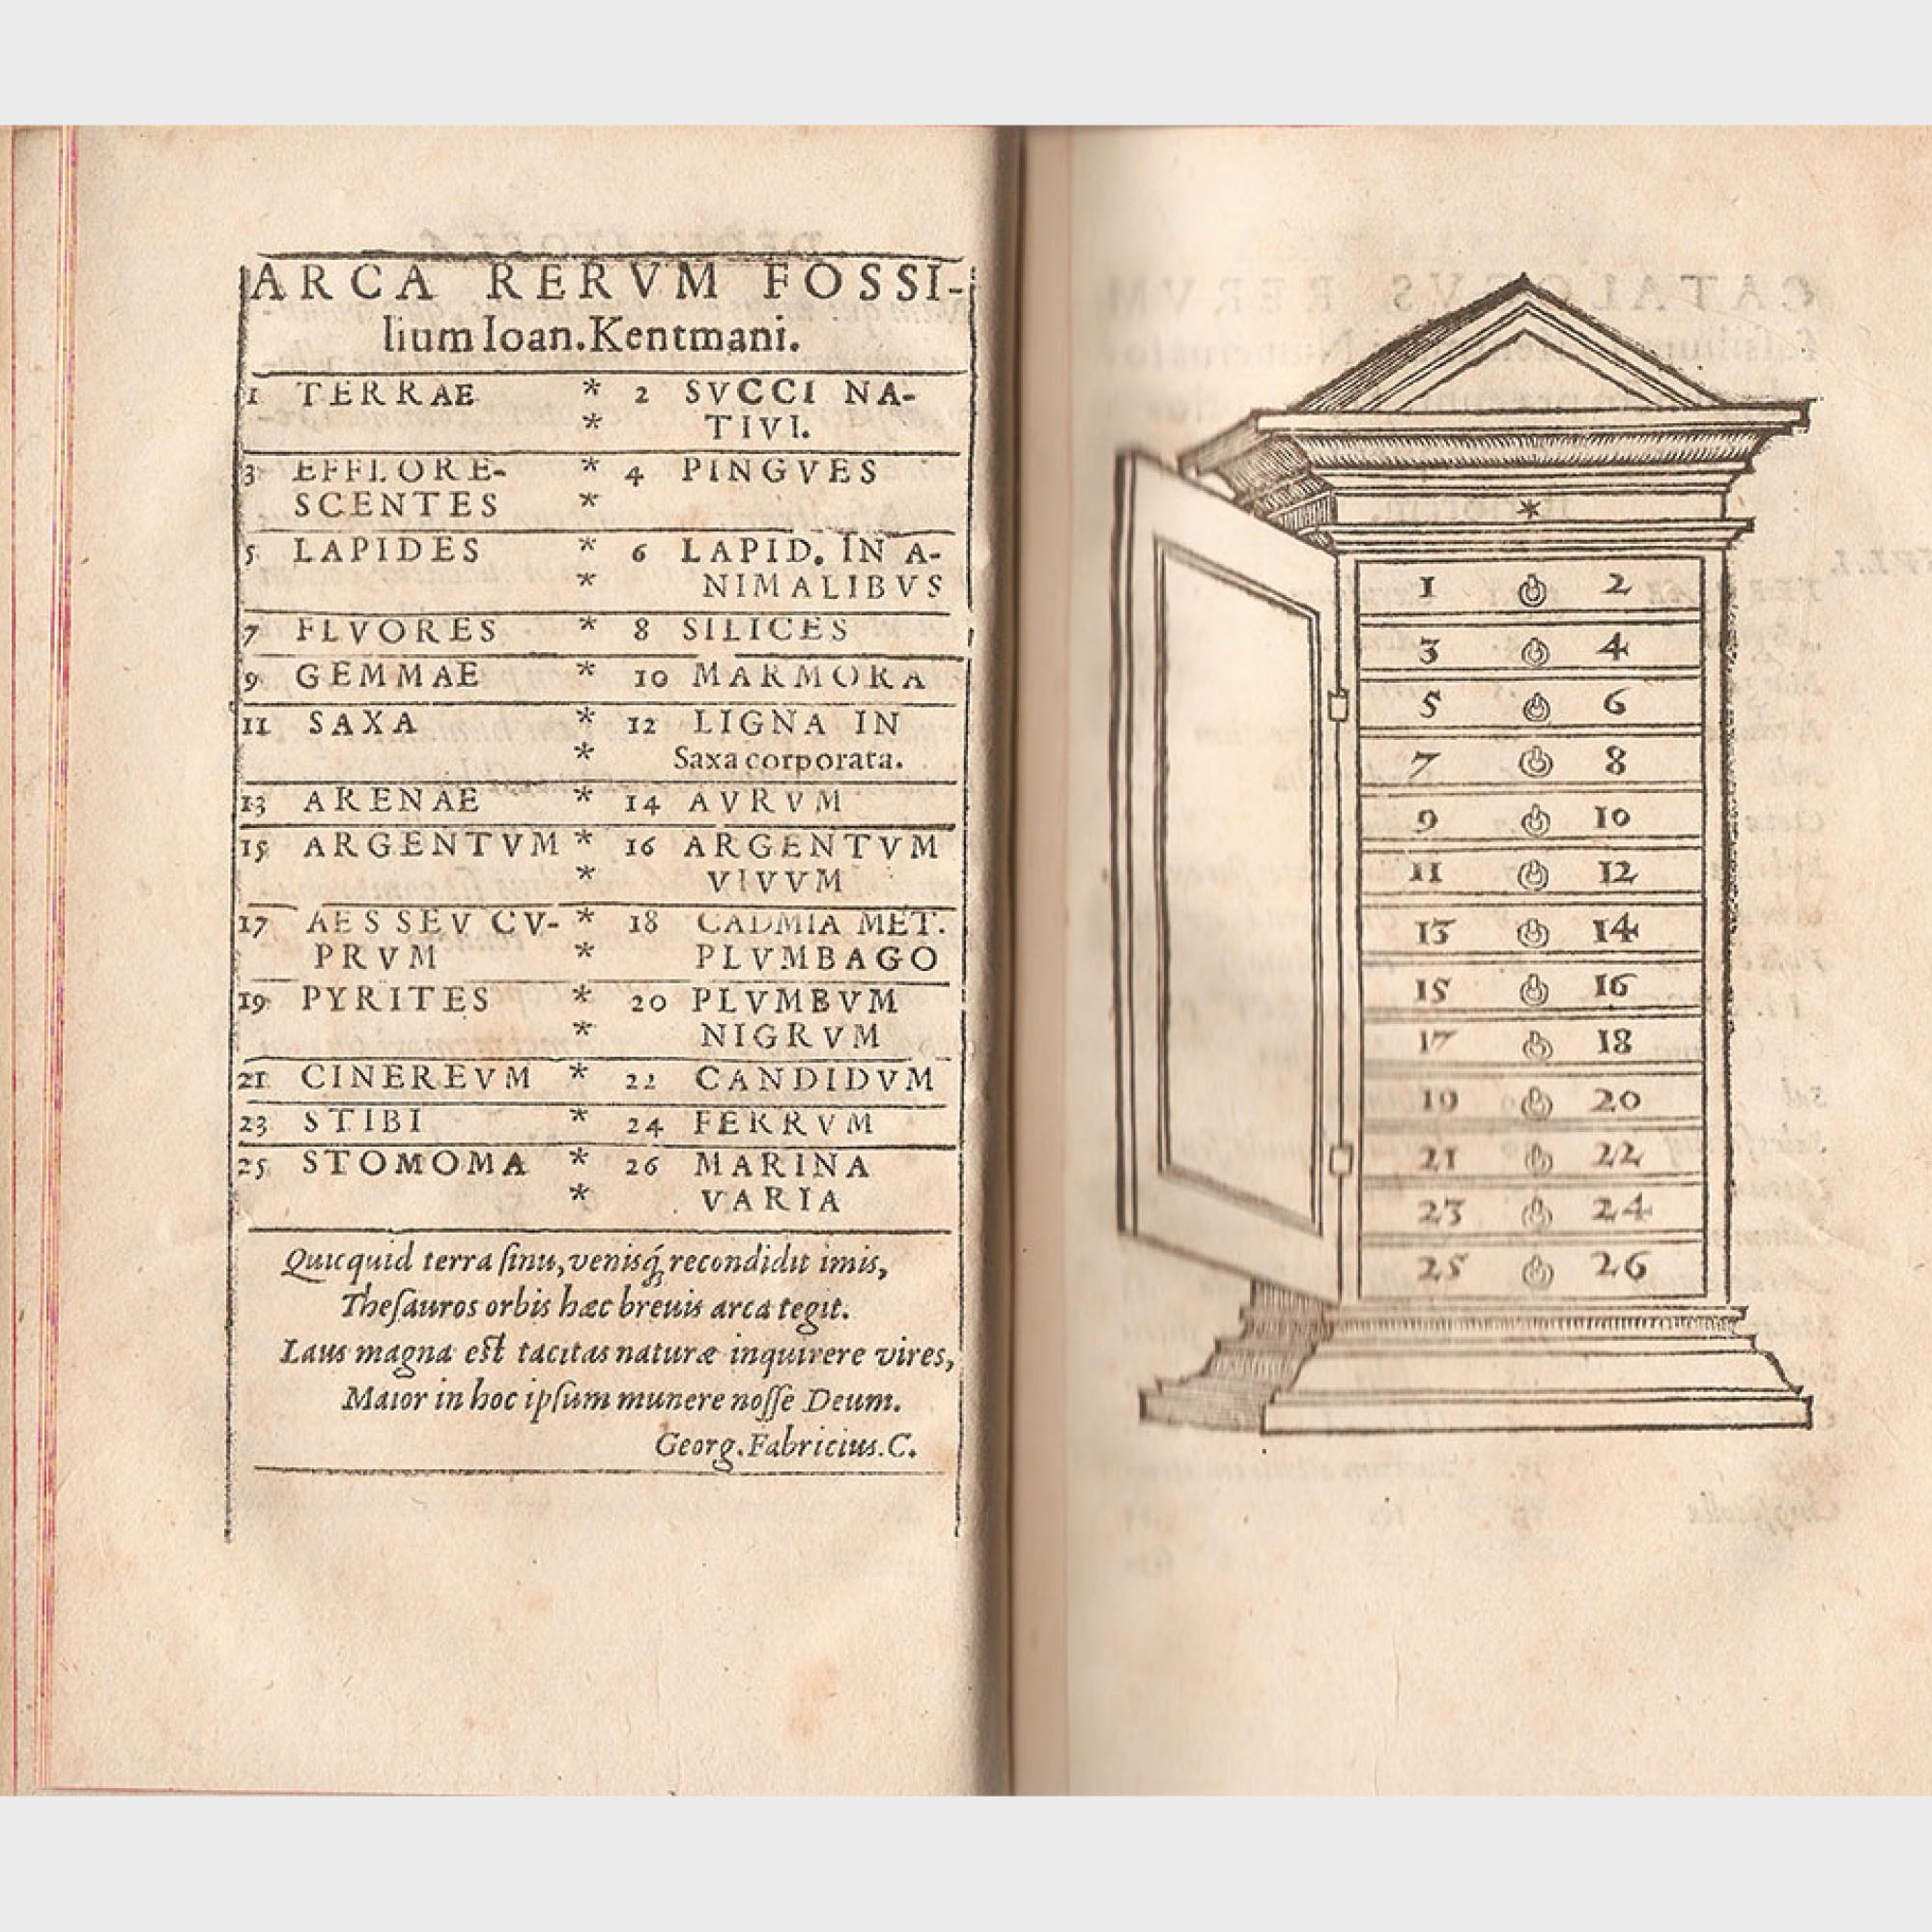 ARCA RERVM FOSSI-
lium Ioan.Kentmani.
1 TERRAE * 2 SVCCI NA-
* TIVI.
3 EFFLORE- * 4 PINGVES
SCENTES *
5 LAPIDES * 6 LAPID. IN A-
* NIMALIBVS
7 FLVORES * 8 SILICES
9 GEMMAE * 10 MARMORA
11 SAXA * 12 LIGNA IN
* Saxa corporata.
13 ARENAE * 14 AVRVM
15 ARGENTVM * 16 ARGENTVM
* VIVVM
17 AES SEV CV- * 18 CADMIA MET.
PRVM * PLVMBAGO
19 PYRITES * 20 PLVMBVM
* NIGRVM
21 CINEREVM * 22 CANDIDVM
23 STIBI * 24 FERRVM
25 STOMOMA * 26 MARINA
* VARIA
Quicquid terra ſinu, venisq́ recondidit imis,
Theſauros orbis hæc breuis arca tegit.
Laus magna eſt tacitas naturæ inquirere vires,
Maior in hoc ipſum munere noſſe Deum.
Georg.Fabricius.C.
*
1 2
3 4
5 6
7 8
9 10
11 12
13 14
15 16
17 18
19 20
21 22
23 24
25 26